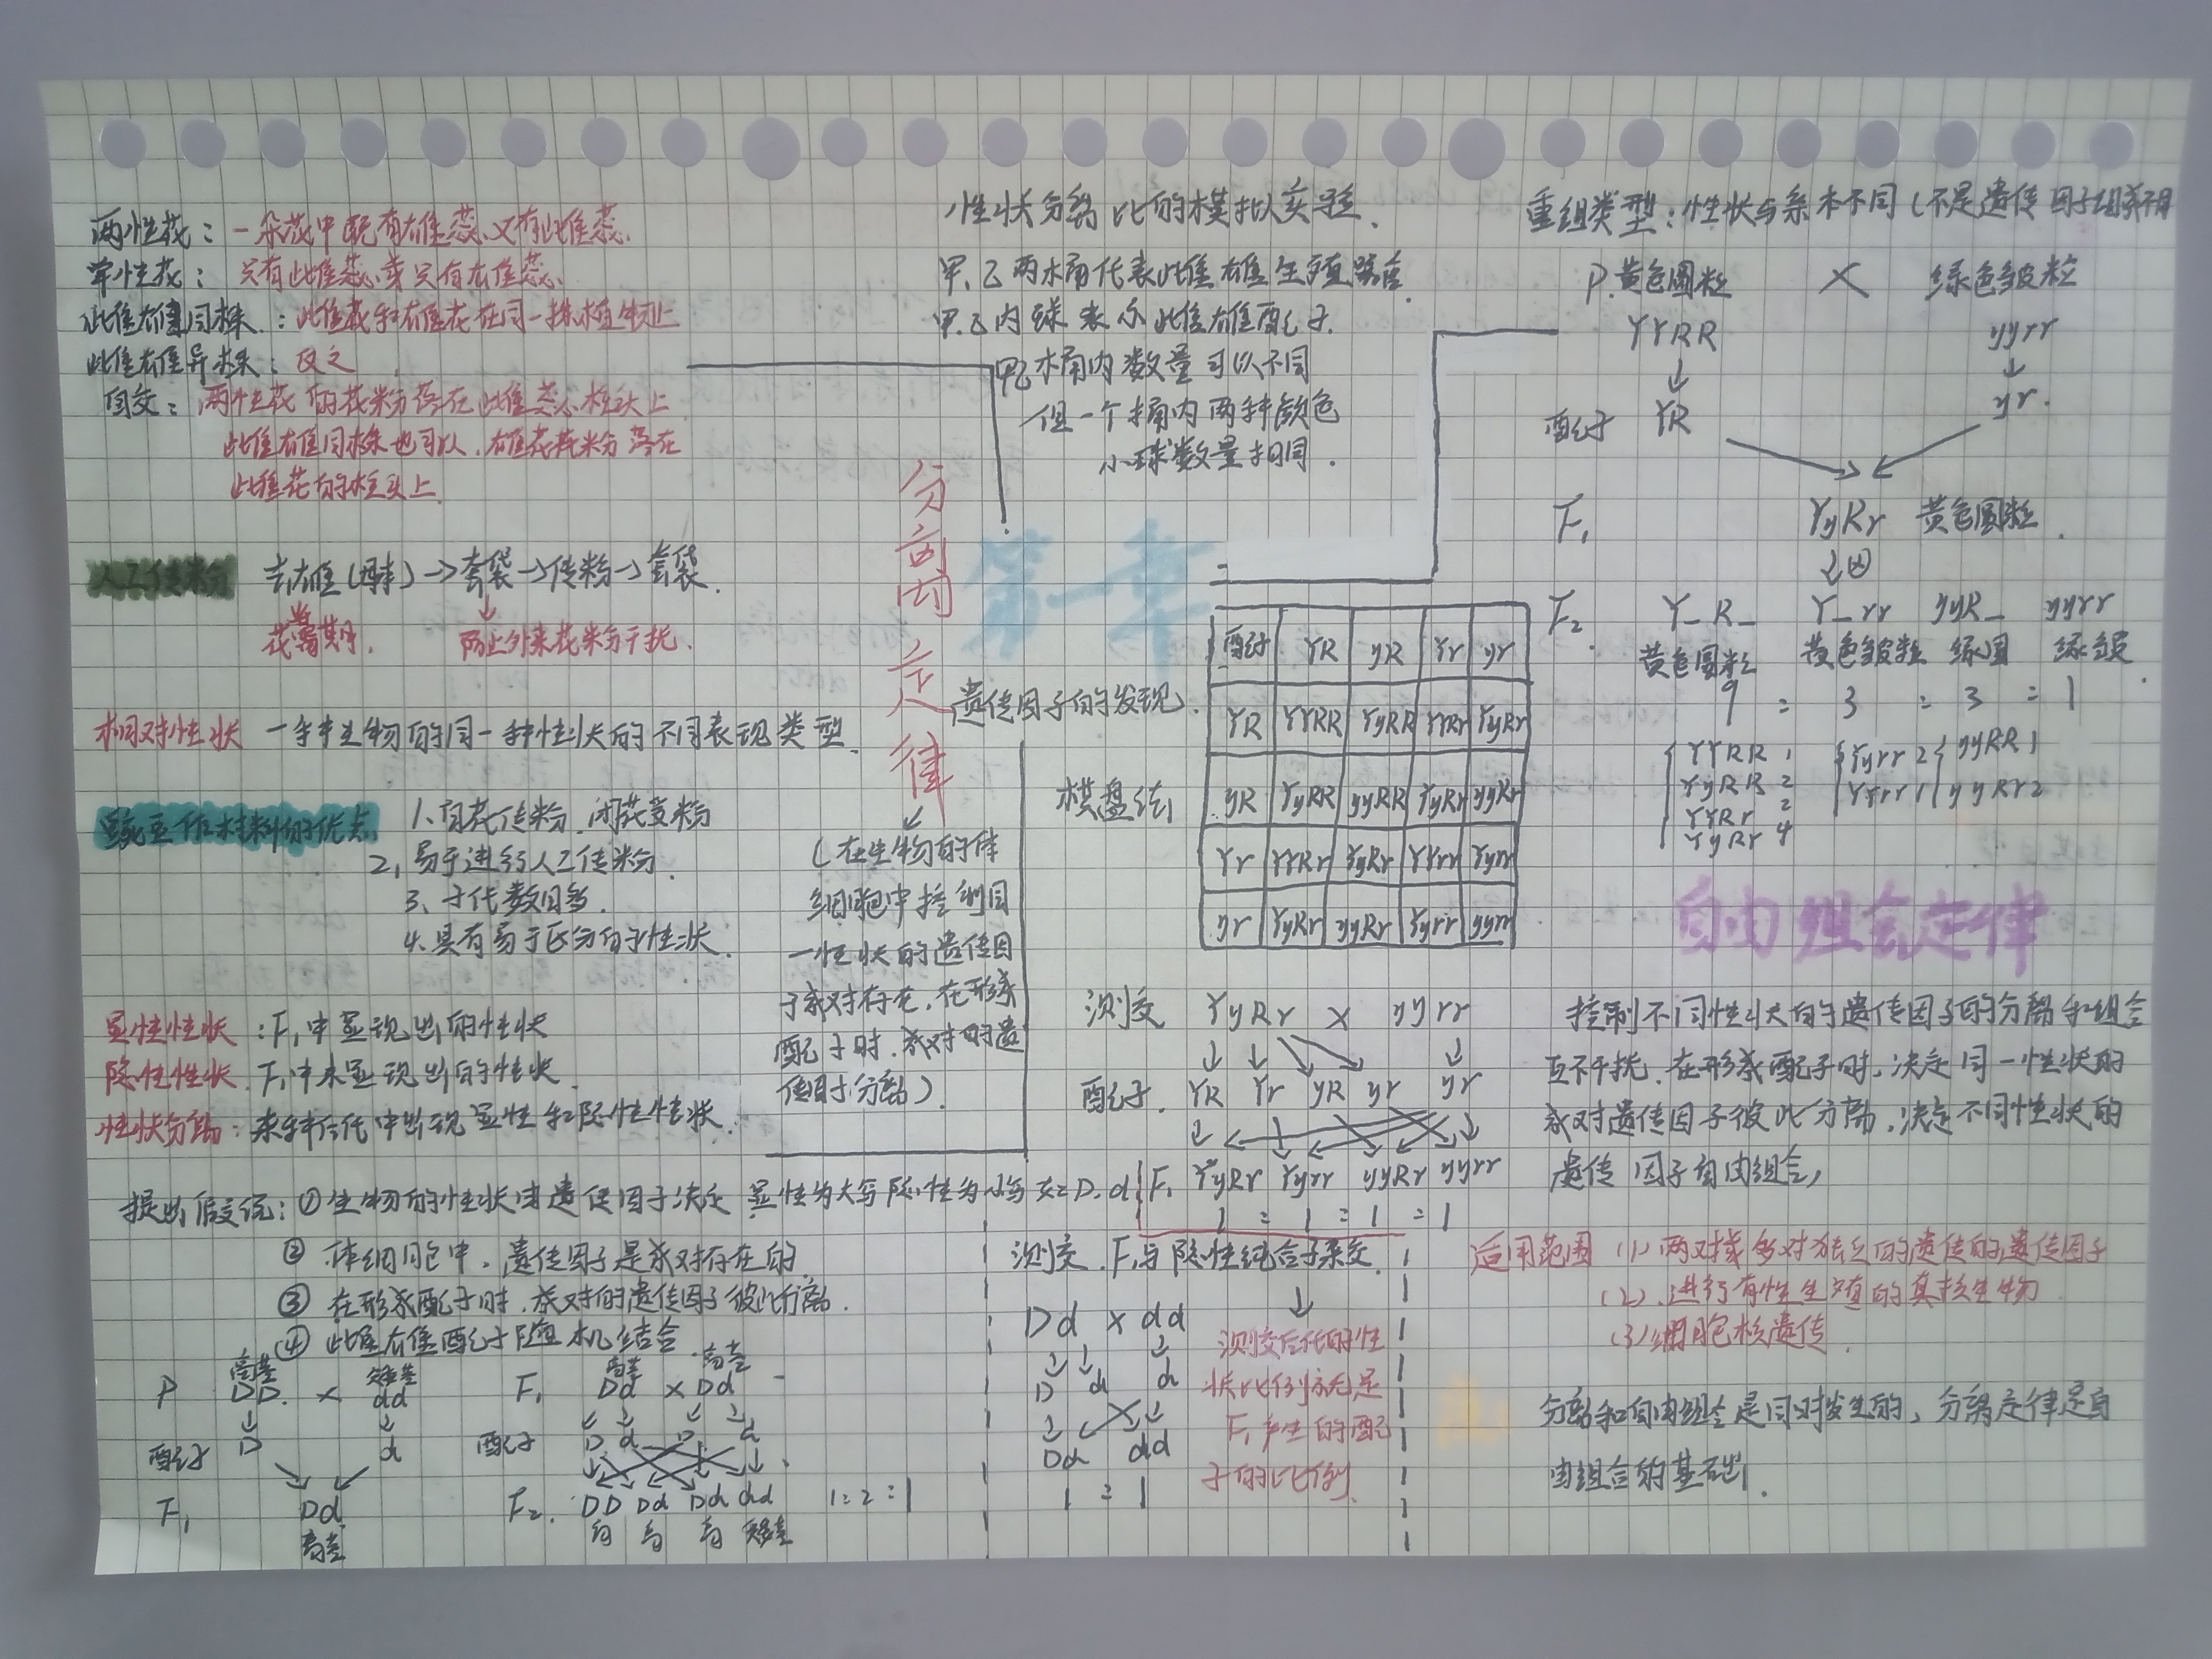 两性花：一朵花中既有雄蕊又有雌蕊.
单性花：只有雌蕊或只有雄蕊.
雌雄同株：雌花和雄花在同一株植物上
雌雄异株：反之
自交：两性花的花粉落在雌蕊柱头上
雌雄同株也可以,雄花花粉落在
雌花的柱头上
人工传粉 去雄(母本)→套袋→传粉→套袋.
花蕾期. 防止外来花粉干扰.
相对性状 一种生物的同一种性状的不同表现类型.
豌豆作材料的优点 1.自花传粉、闭花受粉
2.易于进行人工传粉.
3、子代数目多.
4.具有易于区分的性状.
显性性状：F₁中显现出的性状
隐性性状.F₁中未显现出的性状
性状分离：杂种后代中出现显性和隐性性状.
提出假说：①生物的性状由遗传因子决定 显性为大写隐性为小写 如：D.d
② 体细胞中，遗传因子是成对存在的
③ 在形成配子时.成对的遗传因子彼此分离.
④ 雌雄配子随机结合.
P 高茎 DD × 矮茎 dd
配子 D d
F₁ Dd
高茎
F₁ 高茎 Dd × 高茎 Dd
配子 D d D d
F₂. DD Dd Dd dd 1:2:1
高 高 高 矮茎
性状分离比的模拟实验.
甲、乙两水桶代表雌雄生殖器官.
甲.乙内球表示雌雄配子.
甲乙水桶内数量可以不同
但一个桶内两种颜色
小球数量相同.
第一章
遗传因子的发现.
分离定律
(在生物的体
细胞中控制同
一性状的遗传因
子成对存在,在形成
配子时.成对的遗
传因子分离).
棋盘法
配子 YR yR Yr yr
YR YYRR YyRR YYRr YyRr
yR YyRR yyRR YyRr yyRr
Yr YYRr YyRr YYrr Yyrr
yr YyRr yyRr Yyrr yyrr
测交 YyRr × yyrr
配子. YR Yr yR yr yr
F₁ YyRr Yyrr yyRr yyrr
1 : 1 : 1 : 1
测交.F₁与隐性纯合子杂交.
Dd × dd
D d d
Dd dd
1 : 1
测交后代的性
状比例就是
F₁产生的配
子的比例.
重组类型：性状与亲本不同(不是遗传因子组成不同
P.黄色圆粒 × 绿色皱粒
YYRR yyrr
配子 YR yr.
F₁ YyRr 黄色圆粒.
F₂ Y_R_ Y_rr yyR_ yyrr
黄色圆粒 黄色皱粒 绿圆 绿皱.
9 : 3 : 3 : 1
YYRR 1 Yyrr 2 yyRR 1
YyRR 2 YYrr 1 yyRr 2
YYRr 2
YyRr 4
自由组合定律
控制不同性状的遗传因子的分离和组合
互不干扰.在形成配子时,决定同一性状的
成对遗传因子彼此分离,决定不同性状的
遗传因子自由组合,
适用范围 (1)两对或多对独立的遗传的遗传因子
(2).进行有性生殖的真核生物
(3)细胞核遗传.
分离和自由组合是同时发生的，分离定律是自
由组合的基础.